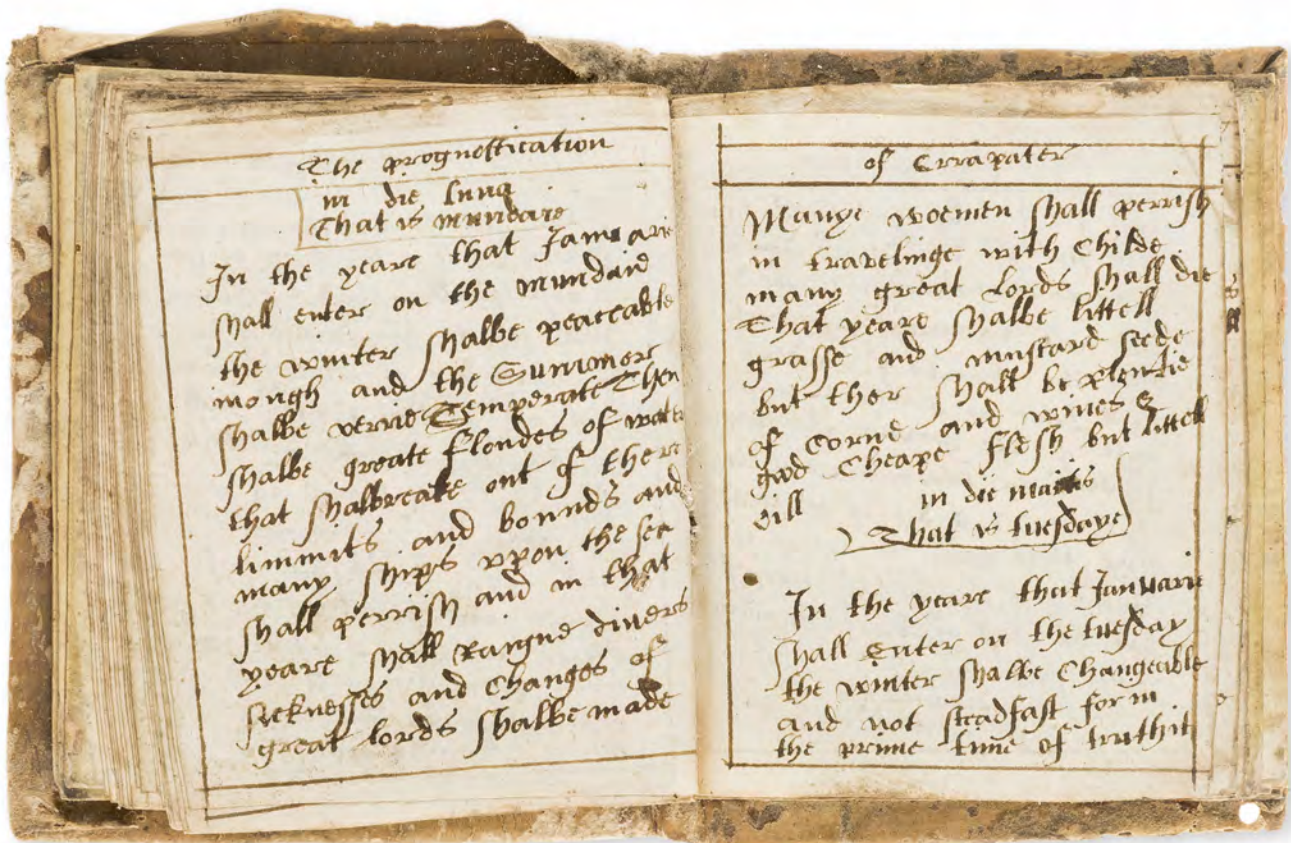 The prognostication
in die luna
That is mundaie
In the yeare that Januarie
shall enter on the mundaie
the winter shalbe peaceable
inough and the Summer
shalbe verrie Temperate Then
shalbe greate floudes of water
that shalbreake out of there
limmits and bounds and
many ships upon the see
shall perrish and in that
yeare shall Raigne divers
sicknesses and Changes of
great lords shalbe made
of Errapater
Manye woemen shall perrish
in travelinge with Childe
many great Lords shall die
That yeare shalbe littell
grasse and mustard seede
but ther shall be plentie
of Corne and wines &
good Cheape flesh but littell
oill
in die martis
That is tuesdaye
In the yeare that Januarie
shall Enter on the tuesday
the winter shalbe Changeable
and not steadfast for in
the prime time of truth it